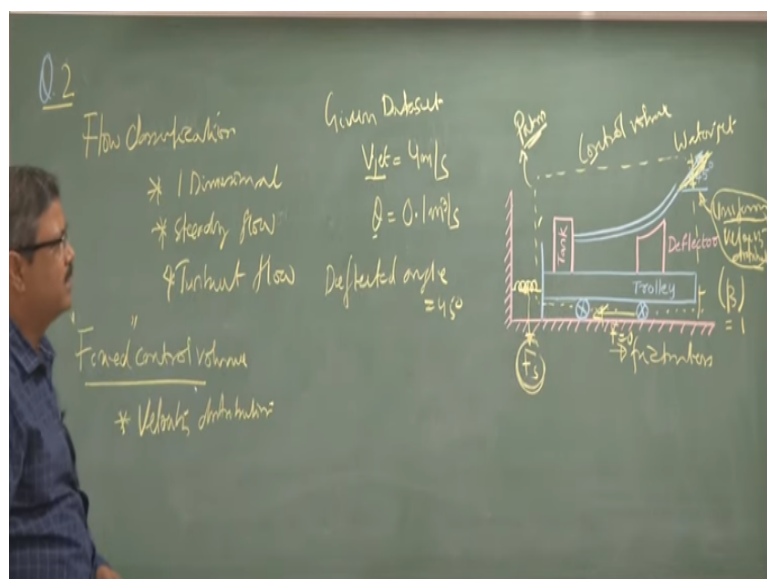 Q.2
Flow classification
* 1 Dimensional
* Steady flow
* Turbulent flow
"Fixed" control volume
* Velocity distribution
Given Dataset
Vjet = 4m/s
Q = 0.1m³/s
Deflected angle
= 45°
Patm
Control volume
Water jet
45°
Uniform
Velocity
Tank
Deflector
Trolley
(β)
= 1
Fs